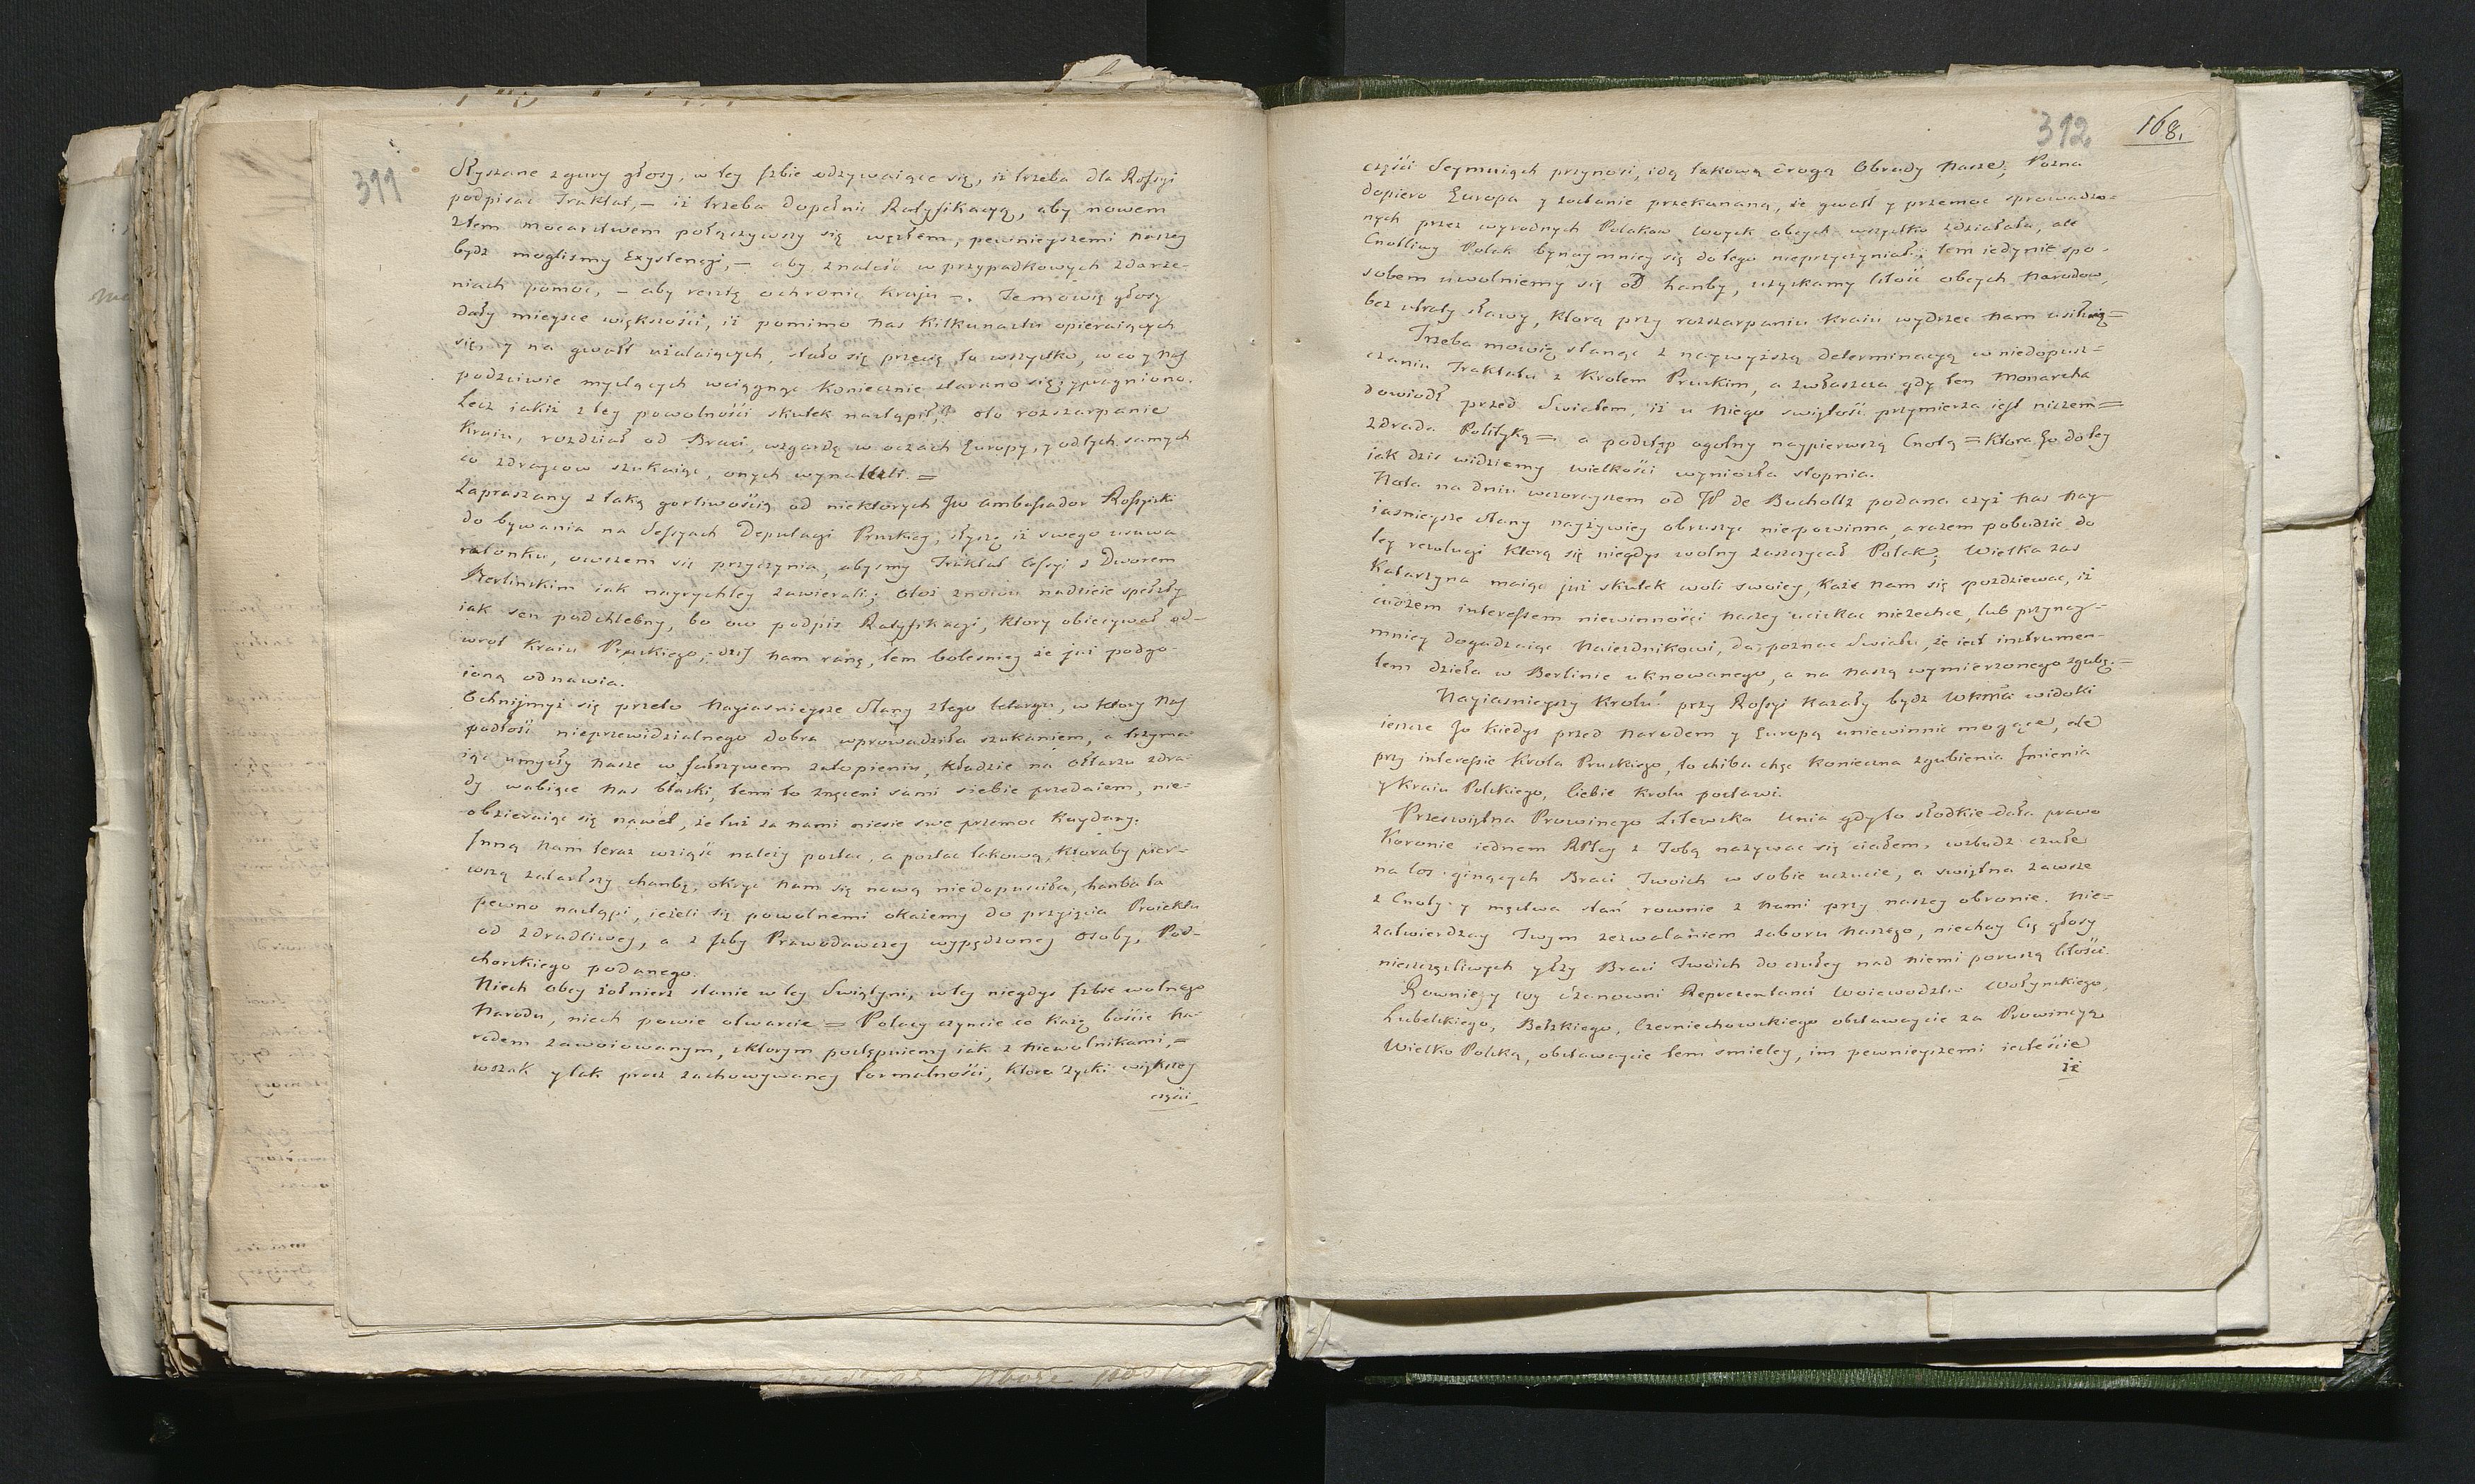 311
Słyszane zgury głosy, w tey Jzbie odzywaiące się, iż trzeba dla Rossyi
podpisać Traktat, – iż trzeba dopełnic Ratyfikacyą, aby nowem
ztem mocarstwem połączywszy się węzłem, pewnieyszemi naszey
bydz moglismy Exystencyi, – aby znaleść w przypadkowych zdarze-
niach pomoc, – aby resztę ochronić kraju –. Te mówię głosy
dały mieysce większości, iż pomimo nas kilkunastu opieraiących
się, y na gwałt użalaiących, stało się przecię to wszystko, w co y nas
podzciwie myslących wciągnąc koniecznie starano się, y pragniono.
Lecz iakiż z tey powolności skutek nastąpił? oto rozszarpanie
Kraiu, rozdział od Braci, wzgardę w oczach Europy, y od tych samych
co zdraycow szukaiąc, onych wynalezli. =
Zapraszany z taką gorliwością od niektorych JW Ambassador Rossyiski
do bywania na Sessyach Deputacyi Pruskiey, słyszę iż swego usuwa
ratunku, owszem się przyczynia, abysmy Traktat Cessyi z Dworem
Berlinskim iak nayrychley zawierali; otoż znowu nadzieie spełzły
iak sen podchlebny, bo ow podpis Ratyfikacyi, ktory obiecywał od-
wrot Kraiu Pruskiego, dziś nam ranę, tem bolesniey że już podgo-
ioną odnawia.
Ocknijmyż się przeto Nayiasnieysze Stany z tego letargu, w ktory nas
podłość nieprzewidzialnego dobra wprowadziła szukaniem, a trzyma-
iąc umysły nasze w fałszywem zatopieniu, kładzie na ołtarzu zdra-
dy wabiące nas blaski, temi to znęceni sami siebie przedaiem, nie-
obzieraiąc się nawet, że tuż za nami niesie swe przemoc kaydany.
Jnną nam teraz wziąść należy postac, a postac takową, ktoraby pier-
wszą zatarłszy chanbę, okryc nam się nową niedopusciła, hanba ta
pewno nastąpi, ieżeli się powolnemi okażemy do przyięcia Proiektu
od zdradliwey, a z Jzby Prawodawczey wypędzoney Osoby, Pod-
horskiego podanego.
Niech obcy żołnierz stanie w tey Swiątyni, w tey niegdys Jzbie wolnego
Narodu, niech powie otwarcie = Polacy czyncie co każę boscie Na-
rodem zawoiowanym, z ktorym postępuiemy iak z niewolnikami, =
wszak y tak procz zachowywaney formalności, ktora zyski większey
części
312
168.
części Seymuiących przynosi, idą takową drogą Obrady Nasze; Pozna
dopiero Europa y zostanie przekonaną, że gwałt y przemoc sprowadzo-
nych przez wyrodnych Polakow woysk obcych wszystko zdziałała, ale
Cnotliwy Polak bynaymniey się do tego nieprzyczyniał; tem iedynie spo-
sobem uwolniemy się od hanby, uzyskamy litość obcych Narodow,
bez utraty sławy, ktorą przy rozszarpaniu Kraiu wydrzec nam usiłuią =
Trzeba mowię stanąc z naywyższą determinacyą w niedopusz-
czaniu Traktatu z Krolem Pruskim, a zwłaszcza gdy ten Monarcha
dowiodł przed Swiatem, iż u Niego swiętość przymierza iest niczem =
zdrada Polityką =. a podstęp ogolny naypierwszą Cnotą = ktora Go do tey
iak dzis widziemy wielkości wyniosła stopnia.
Nota na dniu wczorayszem od JP de Bucholtz podana czyż nas Nay-
iasnieysze Stany nayżywiey obruszyc niepowinna, a razem pobudzić do
tey rezolucyi ktorą się niegdys wolny zaszczycał Polak; Wielka zas
Katarzyna maiąc już skutek woli swoiey, każe nam się spodziewac, iż
cudzem interessem niewinności naszey uciskac niezechce, lub przynay-
mniey dogadzaiąc Naiezdnikowi, da poznac Swiatu, że iest instrumen-
tem dzieła w Berlinie uknowanego, a na naszą wymierzonego zgubę. =
Nayiasnieyszy Krolu! przy Rossyi kazały bydz WKMci widoki
ieszcze Go kiedys przed Narodem y Europą uniewinnić mogące, ale
przy interessie Krola Pruskiego, to chiba chęc konieczna zgubienia Jmienia
y Kraiu Polskiego, Ciebie Krolu postawi.
Przeswiętna Prowincyo Litewska Unia gdy to słodkie dała prawo
Koronie iednem Rzltey z Tobą nazywac się ciałem, wzbudz czułe
na los ginących Braci Twoich w sobie uczucie, a swiętna zawsze
z Cnoty y męstwa stań rownie z nami przy naszey obronie. Nie-
zatwierdzay Twym zezwalaniem zaboru naszego, niechay Cię głosy
nieszczęsliwych y łzy Braci Twoich do czułey nad niemi poruszą litości.
Rownie y Wy Szanowni Reprezentanci Woiewodztw Wołynskiego,
Lubelskiego, Bełzkiego, Czerniechowskiego obstawaycie za Prowincyą
Wielko Polską, obstawaycie tem smieley, im pewnieyszemi iestescie
iż